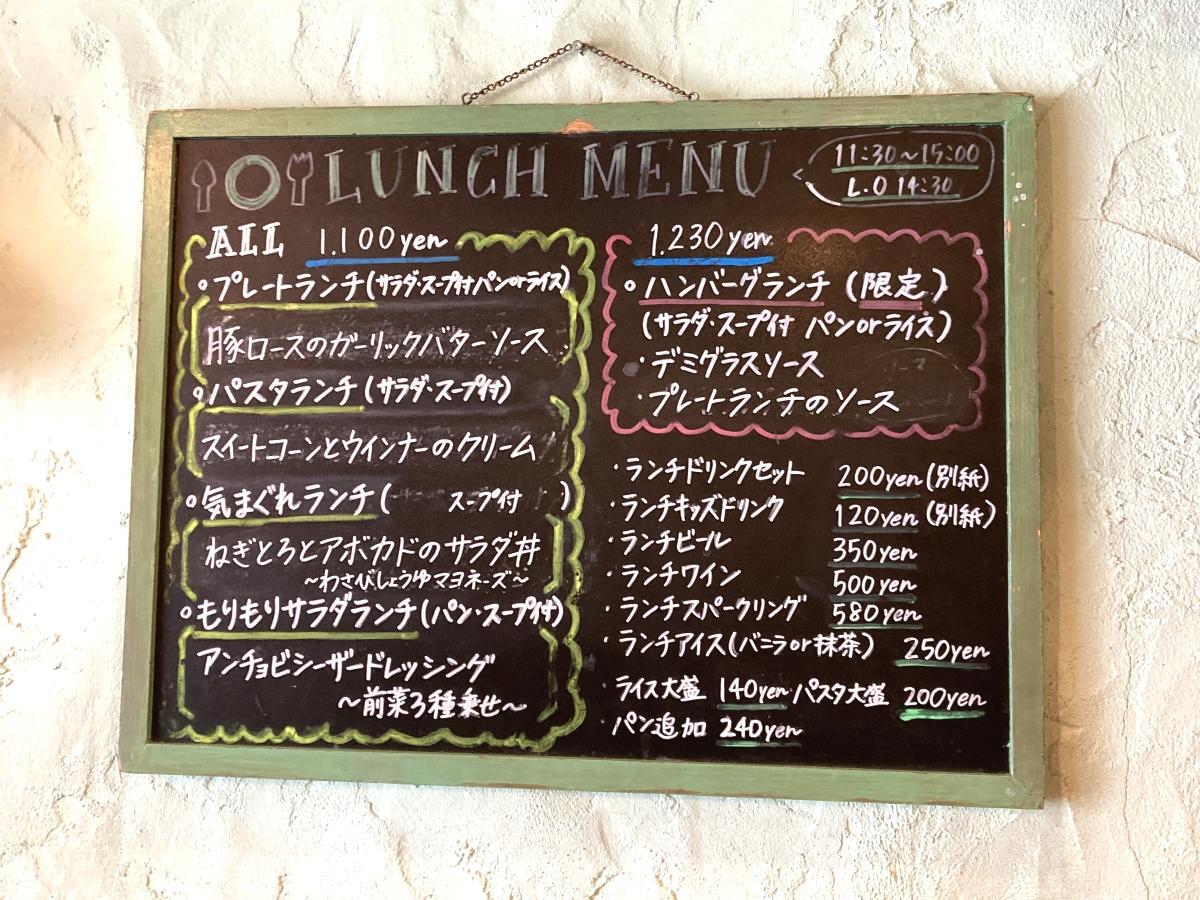 LUNCH MENU
11:30～15:00
L.O 14:30
ALL 1.100yen
。プレートランチ(サラダ・スープ付パンorライス)
豚ロースのガーリックバターソース
。パスタランチ(サラダ・スープ付)
スイートコーンとウインナーのクリーム
。気まぐれランチ( スープ付 )
ねぎとろとアボカドのサラダ丼
～わさびしょうゆマヨネーズ～
。もりもりサラダランチ(パン・スープ付)
アンチョビシーザードレッシング
～前菜3種乗せ～
1.230yen
。ハンバーグランチ(限定)
(サラダ・スープ付 パンorライス)
・デミグラスソース
・プレートランチのソース
・ランチドリンクセット 200yen(別紙)
・ランチキッズドリンク 120yen(別紙)
・ランチビール 350yen
・ランチワイン 500yen
・ランチスパークリング 580yen
・ランチアイス(バニラor抹茶) 250yen
・ライス大盛 140yen パスタ大盛 200yen
・パン追加 240yen